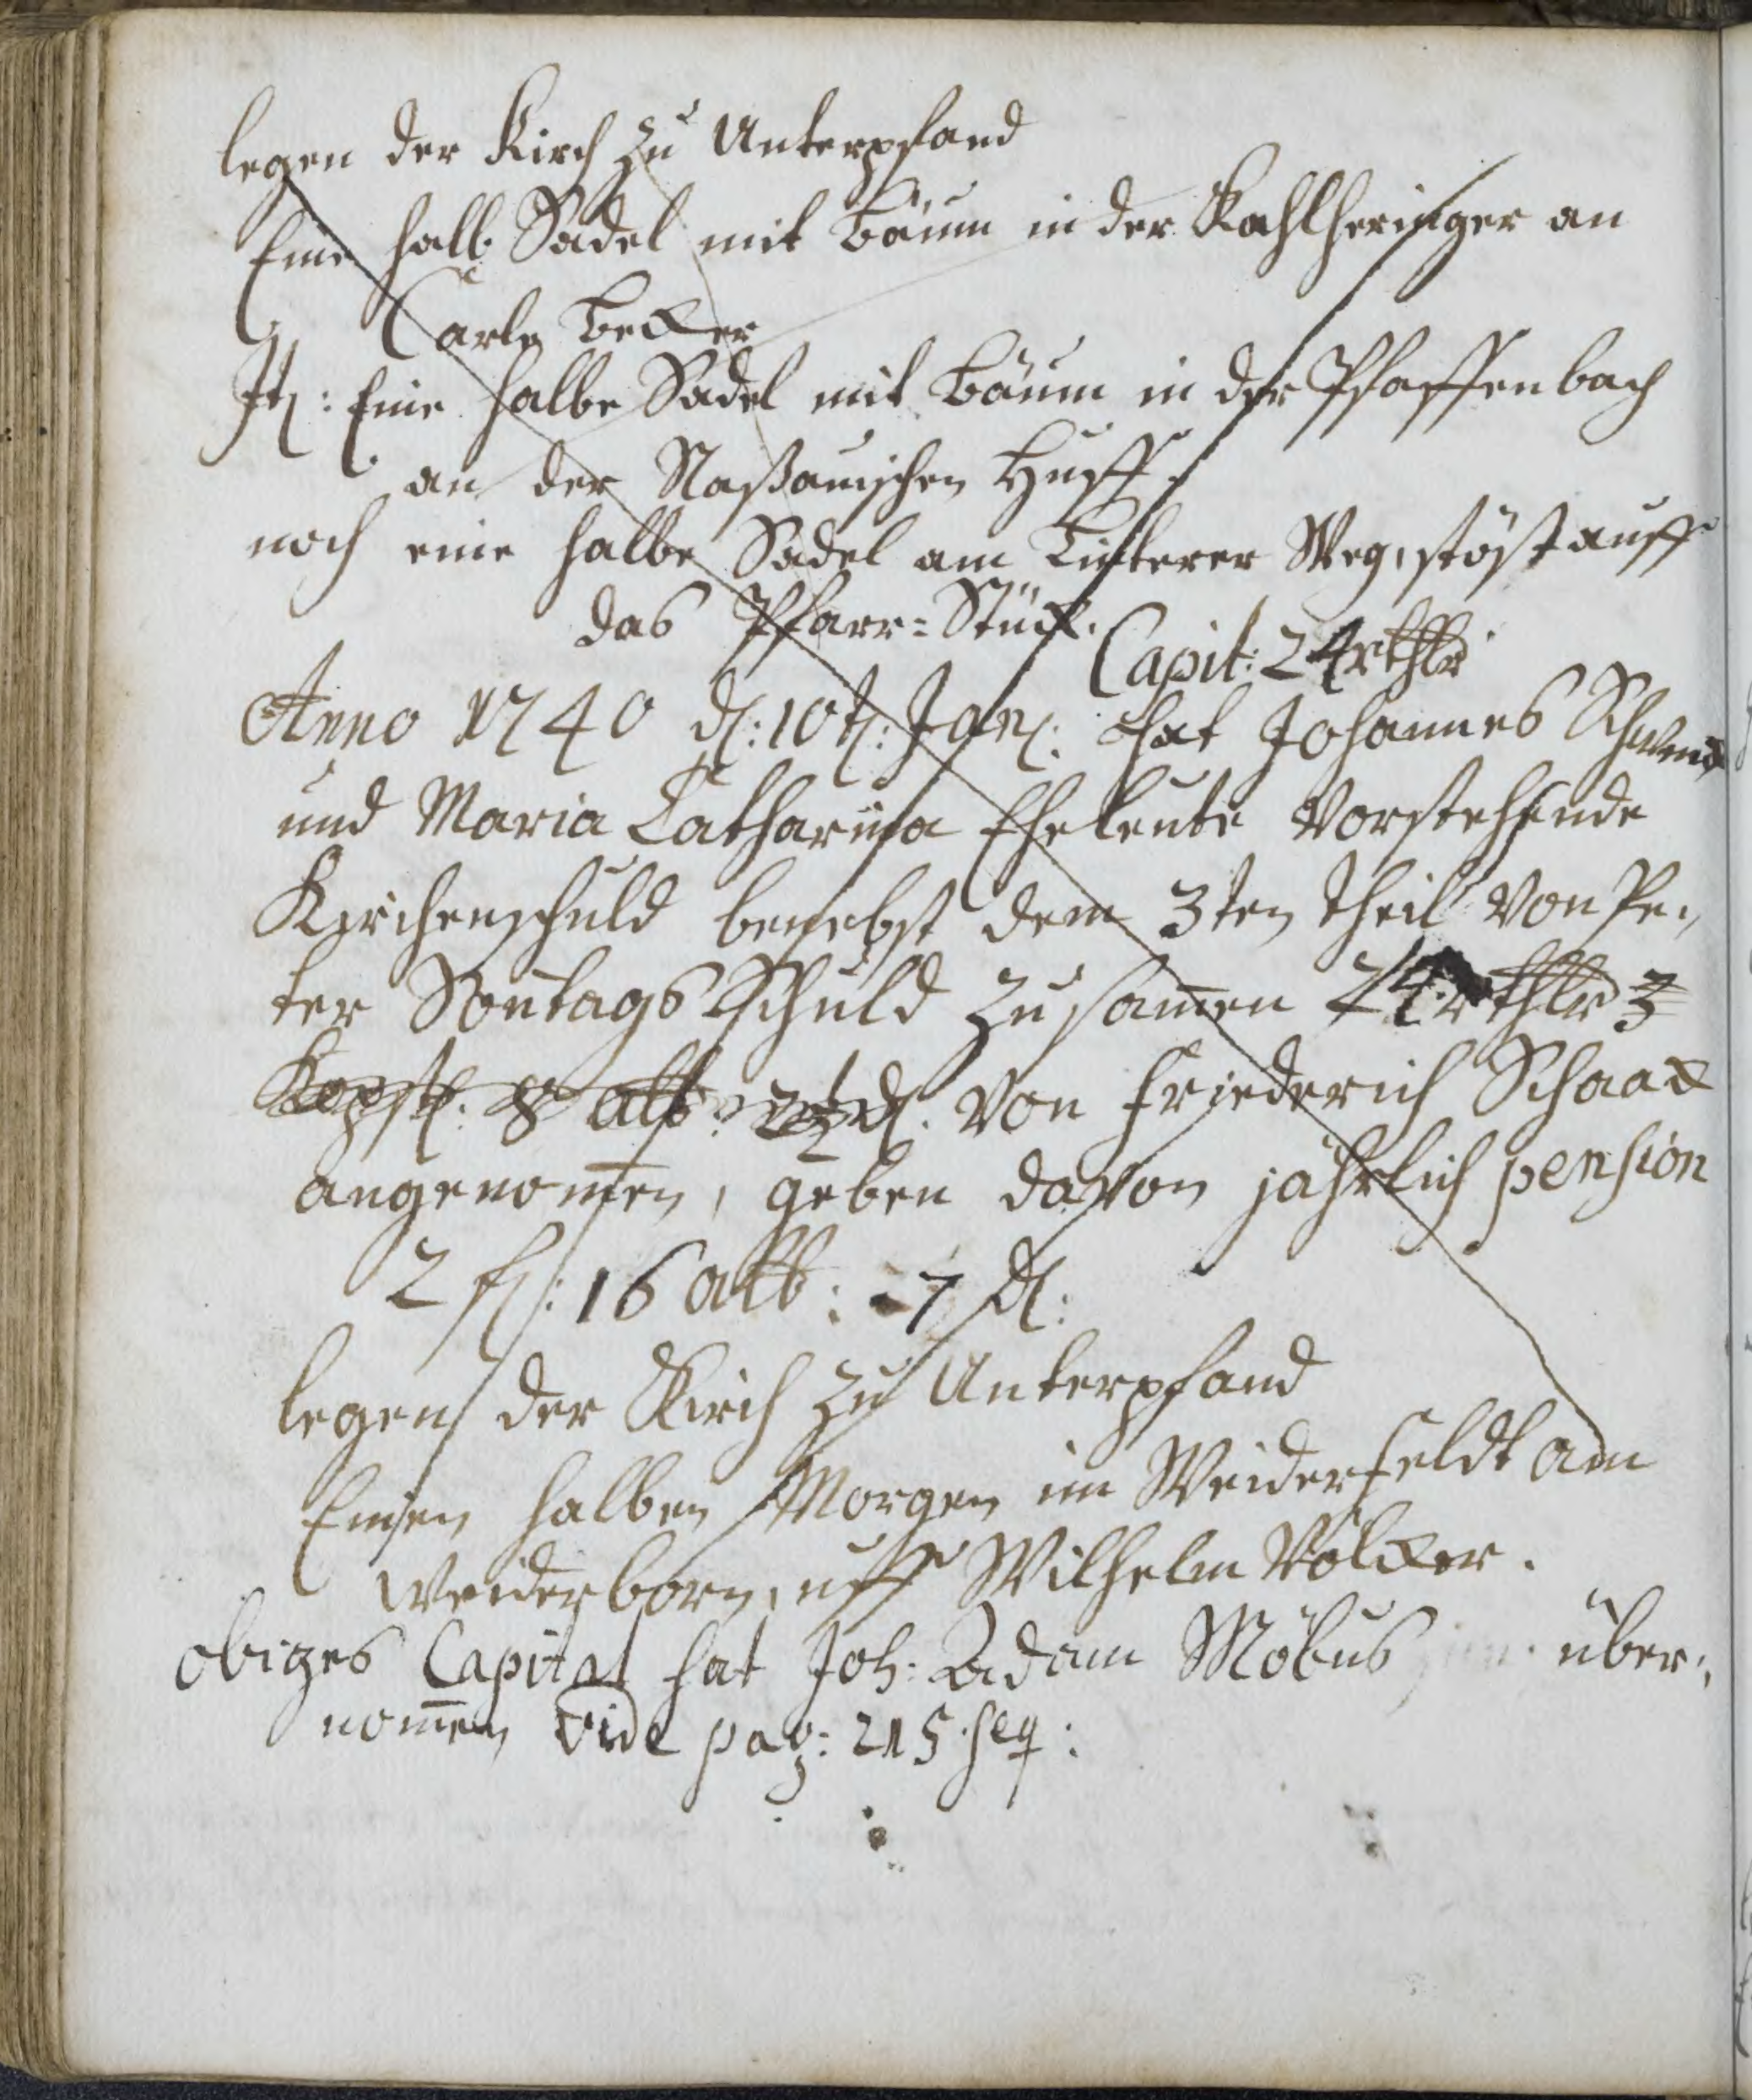 legen der Kirch zu Unterpfand
Eine halb Sadel mit Bäum in der Kahlheringer an
Carln Becker
It: Eine halbe Sadel mit Bäum in der Pfaffenbach
an der Naßauischen Huff.
noch eine halbe Sadel am Weg, stöst auff
das Pfarr=Stück.
Capit: 24 rthlr
Anno 1740 d: 10t: Jan: hat Johannes
und Maria Catharina Eheleute Vorstehende
Kirchenschuld benebst dem 3ten theil von Pe,,
ter Sontags Schuld zusamen 24 rthlr 3
Kopst: 8 alb: d. Von Friederich Schaack
angenomen, geben davon jährlich pension
2 fl: 16 alb: 7 d:
legen der Kirch zu Unterpfand
Einen halben Morgen im Weiderfeldt am
Weiderborn, uff Wilhelm Völcker.
obiges Capital hat Joh: Adam Möbus jun. über,,
nomen vide pag: 215 seq: